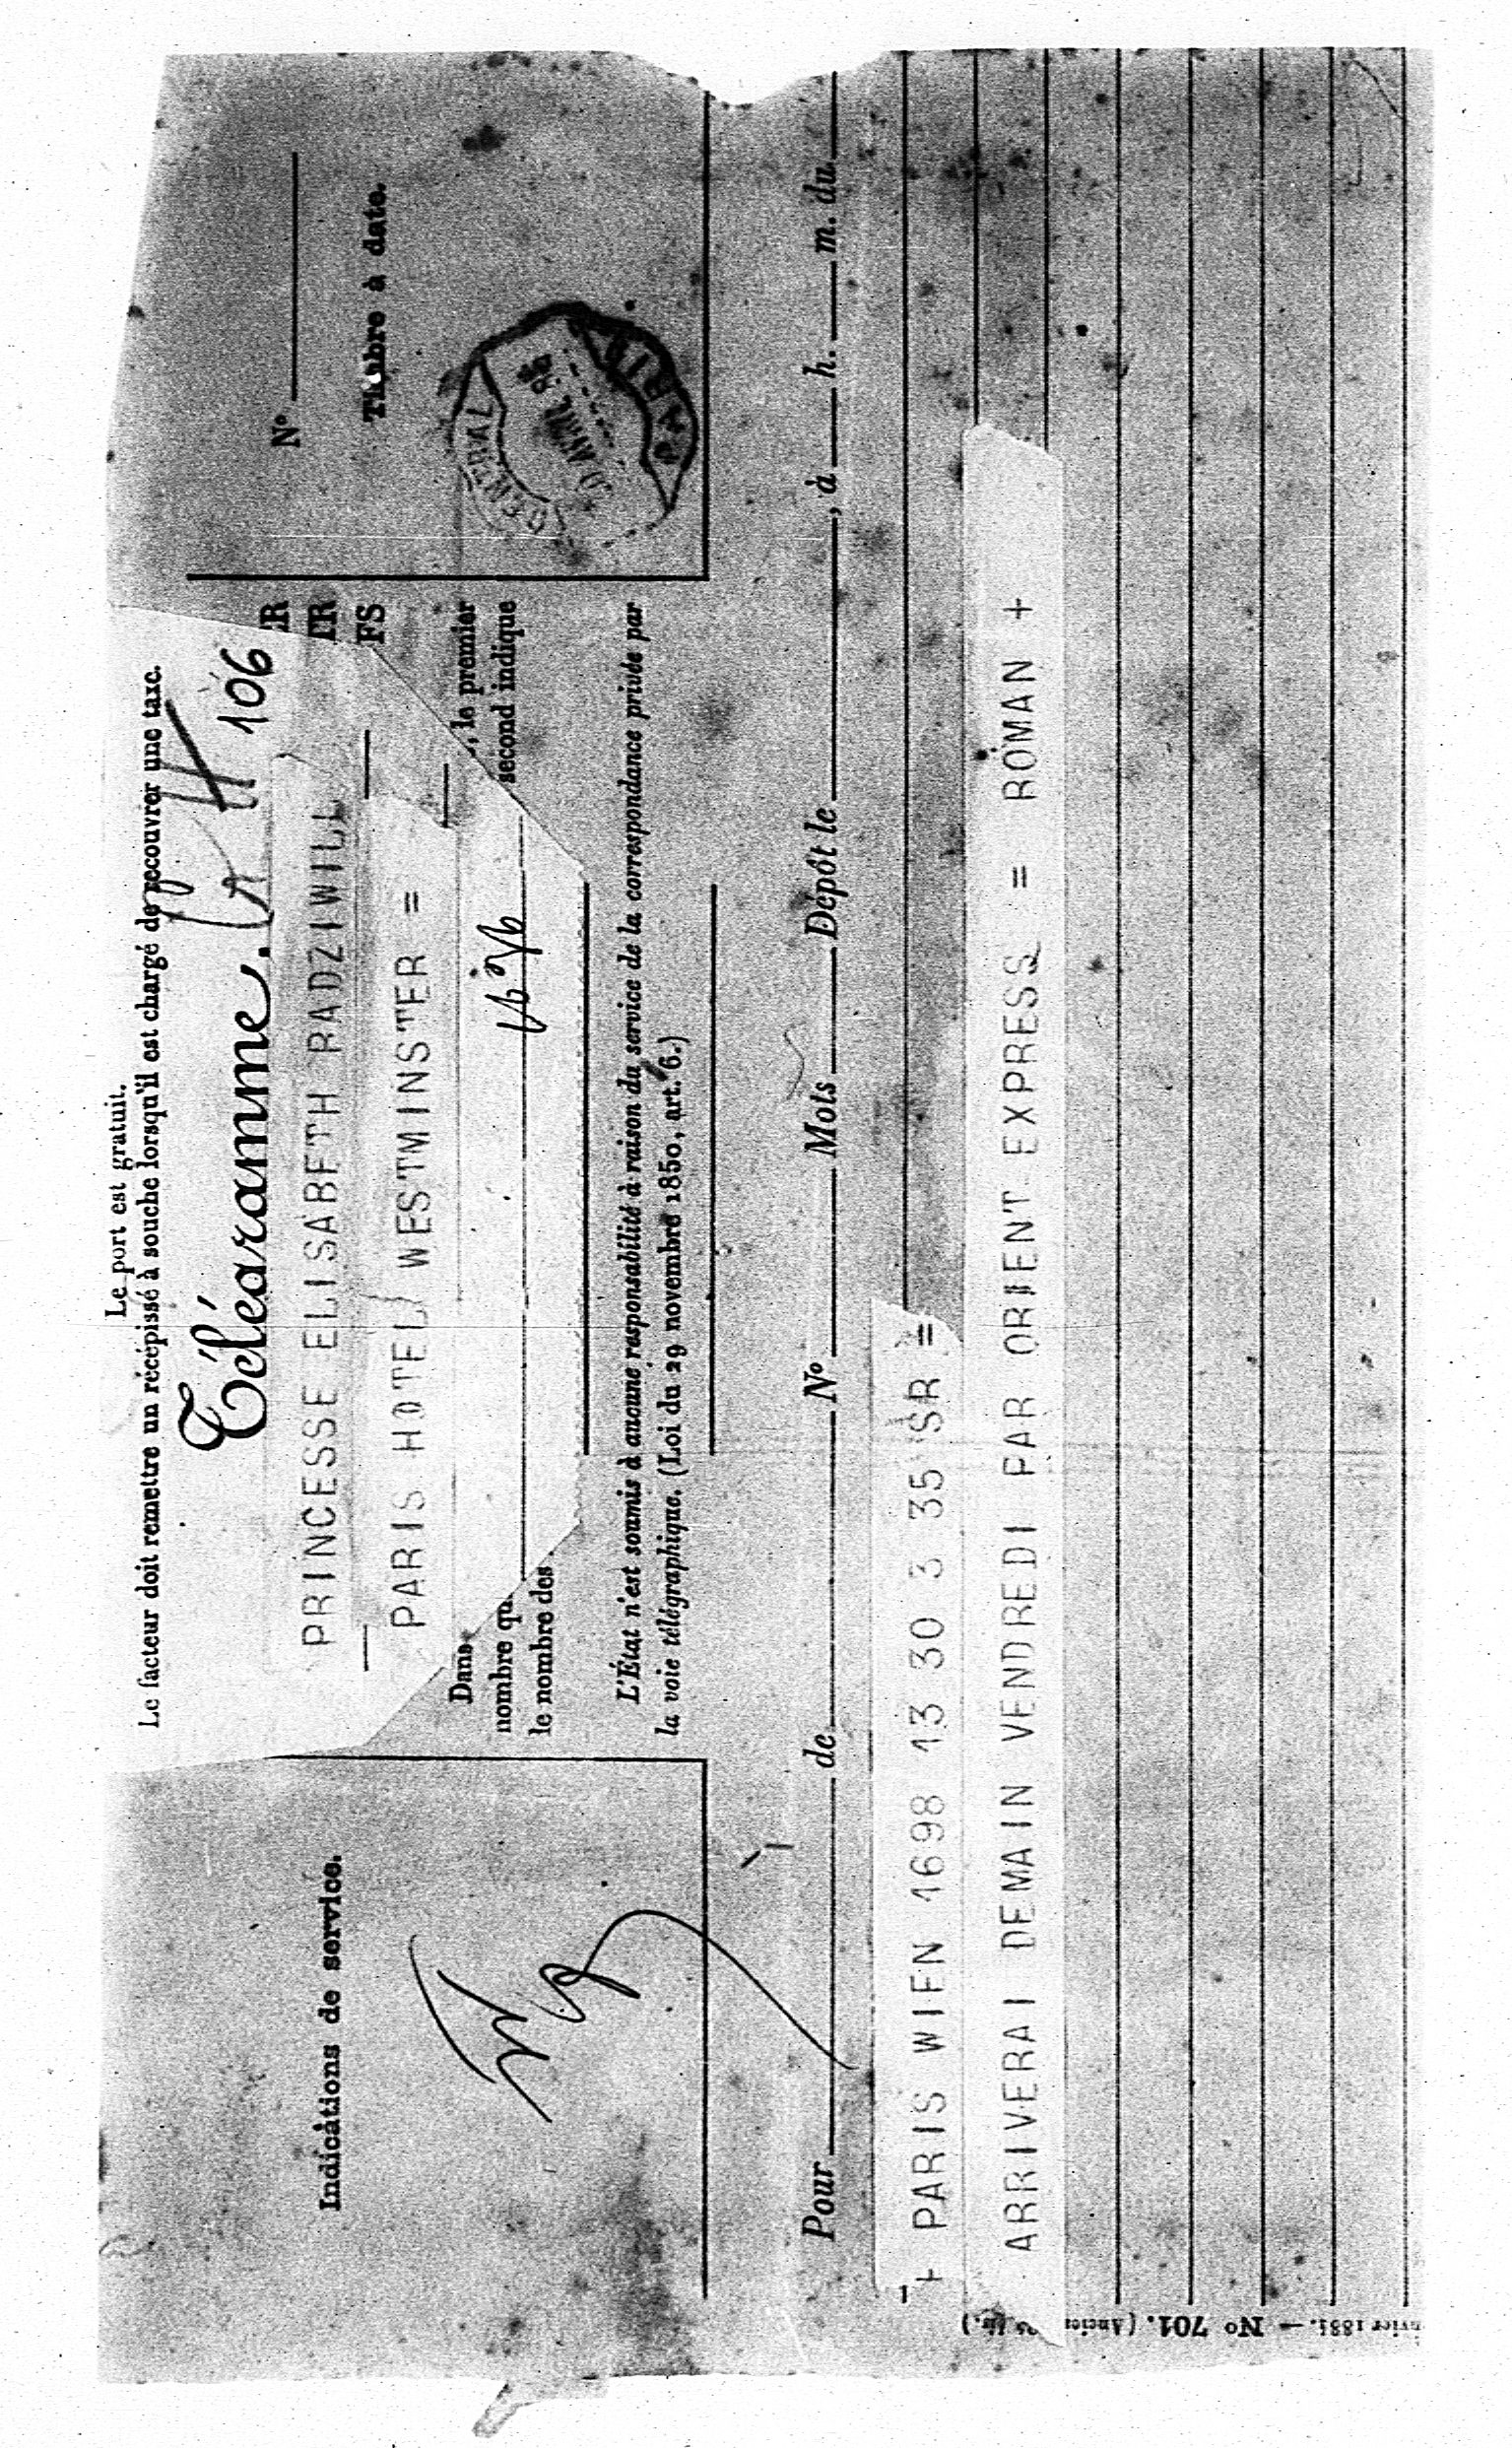 Le port est gratuit.
Le facteur doit remettre un récépissé à souche lorsqu'il est chargé de recouvrer une taxe.
Télégramme.
106
PRINCESSE ELISABETH RADZIWILL
PARIS HOTEL WESTMINSTER =
Indications de service.
N°
Timbre à date.
GENERAL
30 AVRIL
PARIS
IR
TR
FS
, le premier
second indique
Dans
nombre qu
le nombre des
L'État n'est soumis à aucune responsabilité à raison du service de la correspondance privée par
la voie télégraphique. (Loi du 29 novembre 1850, art. 6.)
Pour de N° Mots Dépôt le , à h. m. du
+ PARIS WIEN 1698 13 30 3 35 SR =
ARRIVERAI DEMAIN VENDREDI PAR ORIENT EXPRESS = ROMAN +
vier 1881. — N° 701. (Ancien